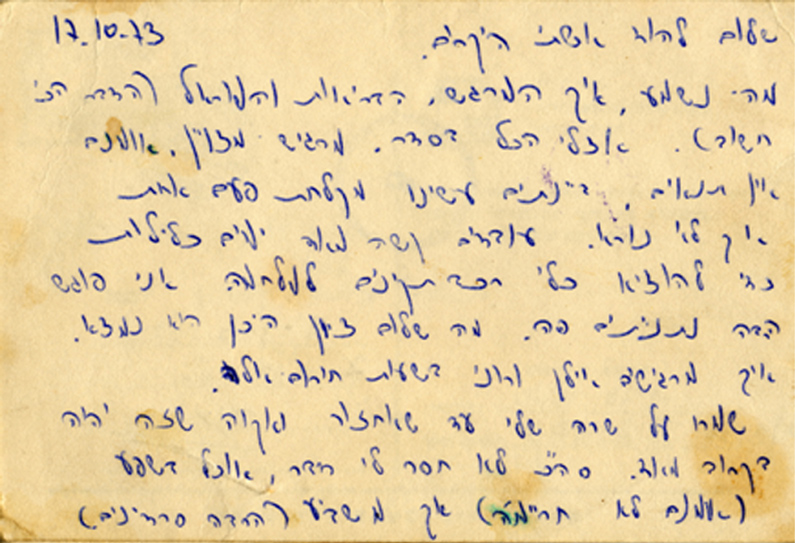 17.10.73
שלום להוד אשתי היקרים.
מה נשמע, איך המרגש, הבריאות והמוראל (הדבר הכי
חשוב). אצלי הכל בסדר. מרגיש מצוין, אומנם
אין תנאים, בינתיים עשינו מקלחת פעם אחת
אך לא נורא. עובדים קשה מאוד ימים כלילות
כדי להוציא כלי רכב תקינים למלחמה. אני פוגש
הרבה נתנייתים פה. מה שלום ציון היכן הוא נמצא.
איך מרגישים אילן ורוני בשעות חירום אלו.
שמרו על שרה שלי עד שאחזור ואקוה שזה יהיה
בקרוב מאוד. סה"כ לא חסר לי דבר, אוכל בשפע
(אומנם לא חריימה) אך משביע (הרבה סרדינים)